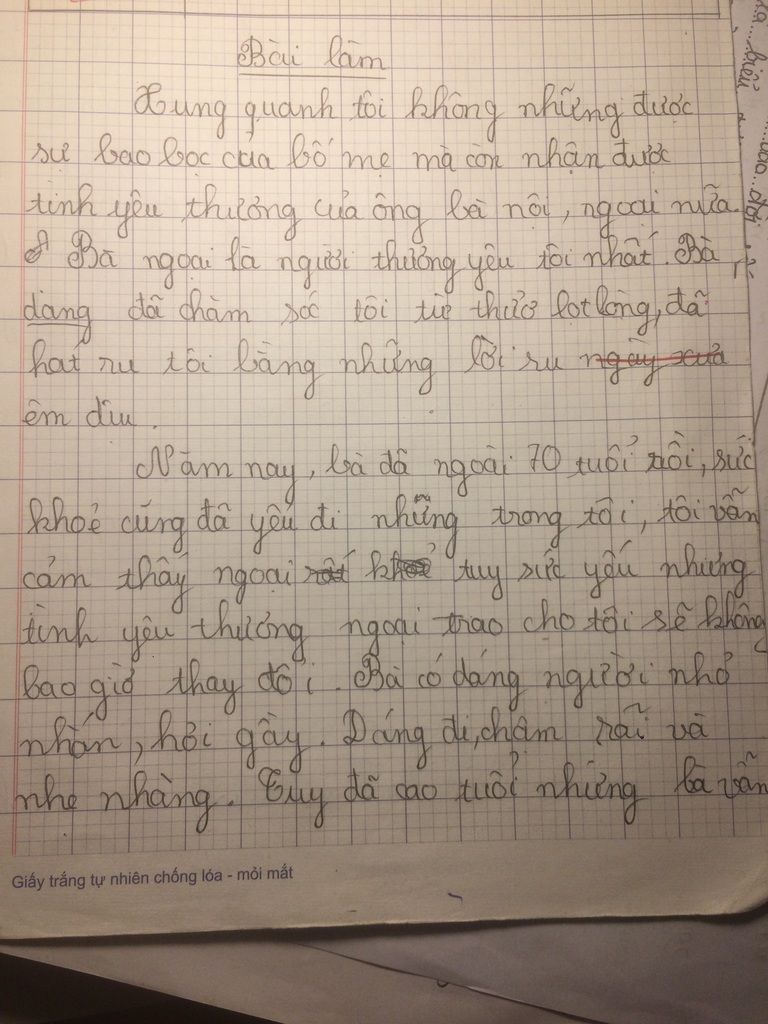 Bài làm
Xung quanh tôi không những được
sự bao bọc của bố mẹ mà còn nhận được
tình yêu thương của ông bà nội, ngoại nữa.
Bà ngoại là người thương yêu tôi nhất. Bà
dang đã chăm sóc tôi từ thưở lọt lòng, đã
hát ru tôi bằng những lời ru ngày xưa
êm dịu.
Năm nay, bà đã ngoài 70 tuổi rồi, sức
khoẻ cũng đã yếu đi nhưng trong tôi, tôi vẫn
cảm thấy ngoại tuy sức yếu nhưng
tình yêu thương ngoại trao cho tôi sẽ không
bao giờ thay đổi. Bà có dáng người nhỏ
nhắn, hơi gầy. Dáng đi, chậm rãi và
nhẹ nhàng. Tuy đã cao tuổi nhưng bà vẫn
Giấy trắng tự nhiên chống lóa - mỏi mắt
biểu